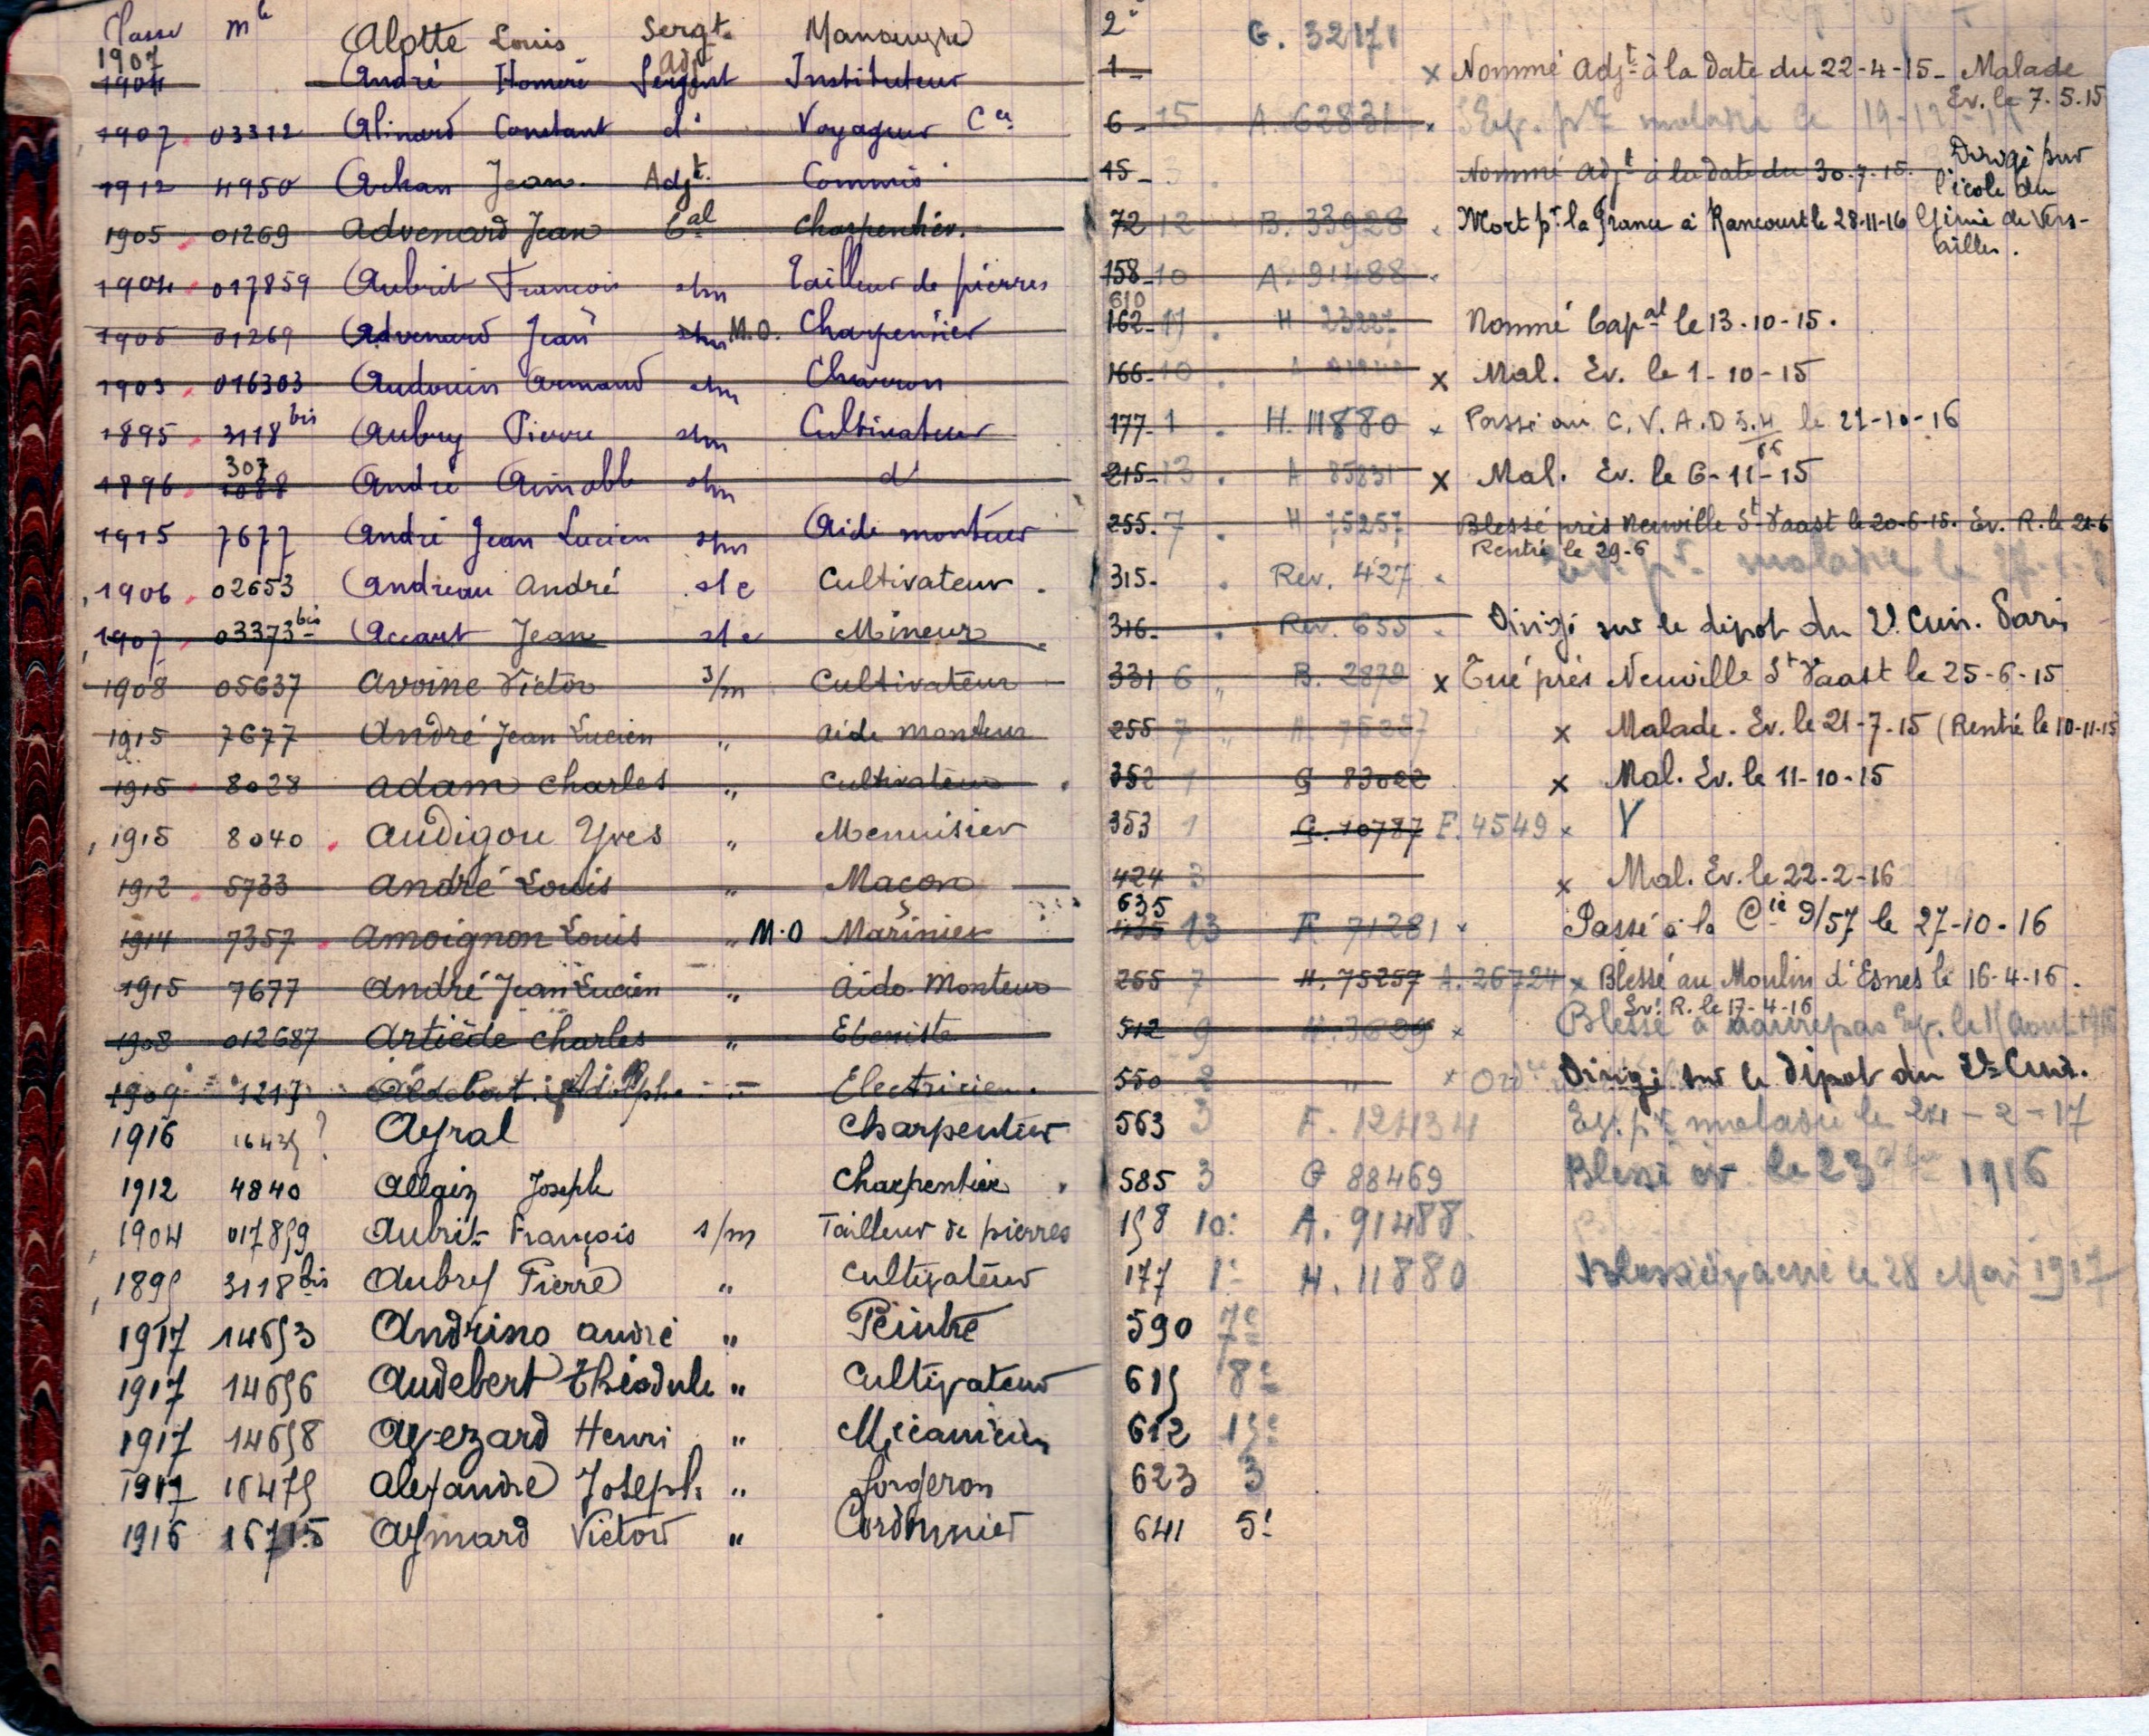 Classe Mle Alotte Louis Sergt. Manœuvre 2e G. 32171
1907
1904 André Homère Sergent Adjt Instituteur 1 x Nommé Adjt à la date du 22-4-15 - Malade
Ev. le 7.5.15
1907 03312 Alinard Constant do Voyageur Cce 6 15 A. 62831 Ev. pr maladie le 19-12-
1912 4950 Achan Jean Adjt. Commis 15 3 Nommé Adjt à la date du 30-7-15. Dirigé sur
l'école du
1905 01269 Advenard Jean Cal Charpentier. 72 12 B. 33928 Mort pr la France à Rancourt le 28-11-16 Génie de Ver-
sailles.
1904 017859 Aubrit François s/m Tailleur de pierres 158 10 A. 91488
610
1905 01269 Advenard Jean s/m M.O. Charpentier 162 11 H 23227 Nommé Capal le 13-10-15.
1903 016303 Audouin Armand s/m Charron 166 10 x Mal. Ev. le 1-10-15
1895 3118 bis Aubry Pierre s/m Cultivateur 177 1 H. 11880 Passé au C.V.A.D le 21-10-16
307
1896 Andre Aimable s/m do 215 13 A 85831 x Mal. Ev. le 6-11-15
1915 7677 André Jean Lucien s/m Aide monteur 255 7 H 75257 Blessé près Neuville St Vaast le 20-6-15. Ev. R. le 21-6
Rentré le 29-6
1906 02653 Andreau André s/c Cultivateur 315 Rev. 427 Ev. pr maladie le
1907 03373 bis Accart Jean s/c Mineur 316 Rev. 655 Dirigé sur le dépot du 2e Cuir. Paris
1908 05637 Avoine Victor s/m Cultivateur 331 6 B. 2879 x Tué près Neuville St Vaast le 25-6-15
1915 7677 André Jean Lucien " Aide monteur 255 7 H 75257 x Malade. Ev. le 21-7-15 (Rentré le 10-11-15
1915 8028 Adam Charles " Cultivateur 352 1 G 83022 x Mal. Ev. le 11-10-15
1915 8040 Audigou Yves " Menuisier 353 1 G. 10787 F. 4549 x Y
1912 5733 André Louis " Maçon 424 3 x Mal. Ev. le 22-2-16
635
1914 7357 Amoignon Louis " M.O Marinier 435 13 F. 71281 Passé à la Cie 9/57 le 27-10-16
1915 7677 André Jean Lucien " Aide-Monteur 255 7 H. 75257 A. 26724 x Blessé au Moulin d'Esnes le 16-4-16.
Ev. R. le 17-4-16
1908 012687 Artiède Charles " Ebeniste 512 9 H. 3629 x Blessé à Maurepas Ev. le Aout 1916
1909 1217 Aldebert Adolphe Electricien. 550 2 " x Dirigé sur le dépot du 2e Cuir.
1916 1643 ? Ayral Charpentier 563 3 F. 124134 Ev. pr maladie le 24-2-17
1912 4840 Allain Joseph Charpentier 585 3 G 88469 Blessé év le 23 1916
1904 017859 Aubrit François s/m Tailleur de pierres 158 10: A. 91488
1895 3118 bis Aubry Pierre " Cultivateur 177 1e H. 11880 Blessé évacué le 28 Mai 1917
1917 14653 Andrino André " Peintre 590 7e
1917 14656 Audebert Théodule " Cultivateur 615 8e
1917 14658 Avezard Henri " Mécanicien 612 15e
1917 16475 Alexandre Joseph " forgeron 623 3
1916 16715 Aymard Victor " Cordonnier 641 5e